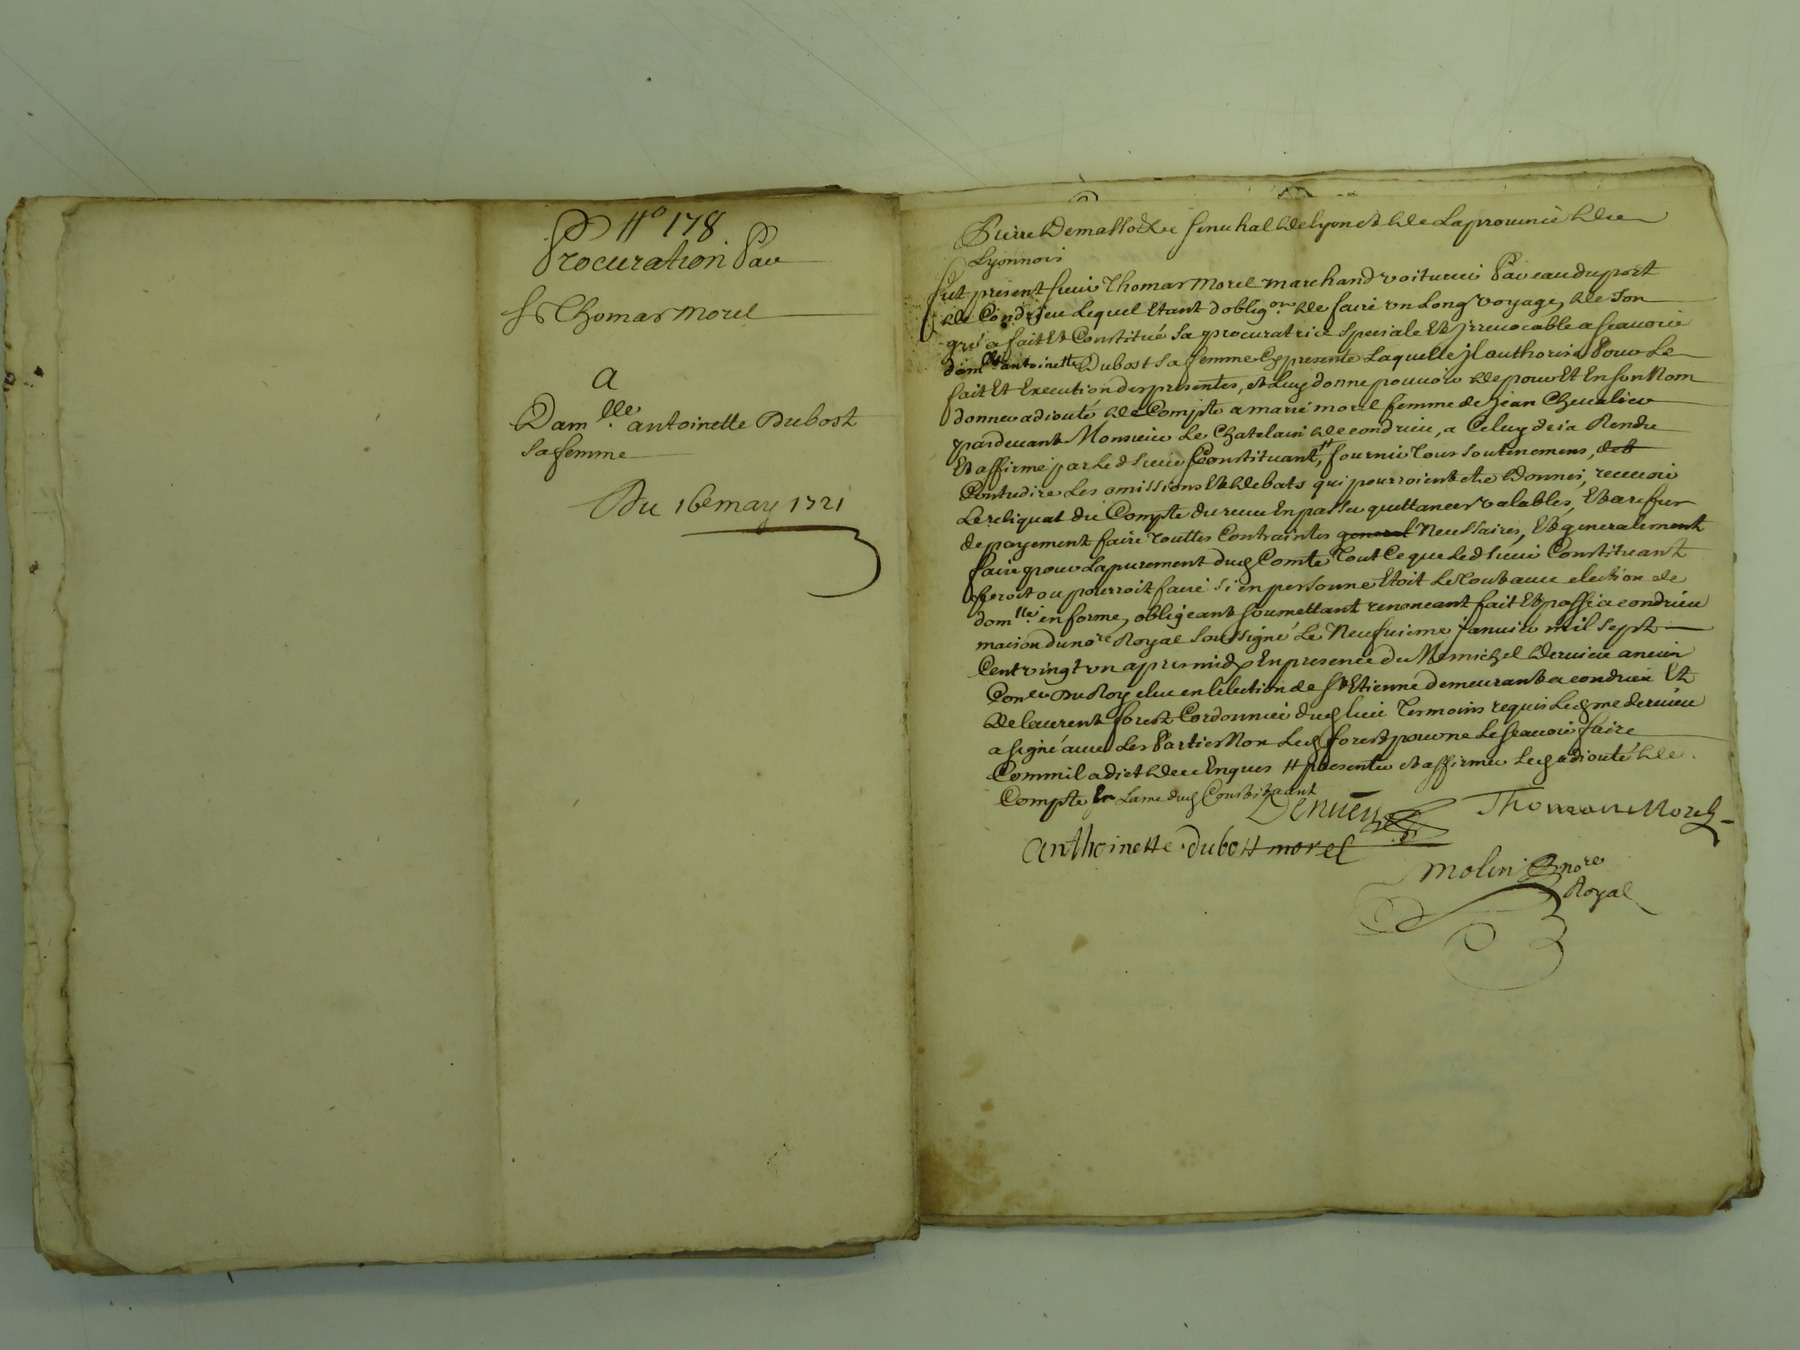 N° 178
Procuration Par
Sr Thomas Morel
A
Dam.lle antoinette Dubost
Sa femme
Du 16e may 1721
Pierre Demasso &c senechal de lyon et de La province de
Lyonnois
fut present sieur Thomas Morel marchand voiturier Par eau du port
de Condrieu Lequel Etant d'oblig.on de faire un Long voyage, de son
gré a fait Et Constitué sa procuratrice speciale Et jrrevocable a scavoir
dam.lle antoinette Dubost sa femme Cy presente Laquelle jl authorise Pour Le
fait Et Execution des presentes, et Luy donne pouvoir de pour Et En son Nom
donner adiouté de Compte a marie morel femme de jean Chevalier
pardevant Monsieur Le Chatelain de condrieu, a Celuy deja Rendu
Et affirmé par Led sieur Constituant, # fournir Tous soutenemens, deb
Contredire Les omissions Et debats qui pourroient etre Donnés, recevoir
Le reliquat du Compte du receu En passer quittances valables, Et a refus
de payement faire Touttes Contraintes general Necessaires, Et generalement
faire pour Lapurement dud Comte Tout Ce que Led sieur Constituant
feroit ou pourroit faire si en personne Etoit Le tout avec election de
dom.lle en forme, obligeant soumettant renonceant fait Et passé a condrieu
maison du no.re Royal soussigné Le Neufvieme janvier mil sept
Cent vingt un apres midy En presence de Me michel Dervieu ancien
Con.er Du Roy elu en l'election de St Etienne demeurant a condrieu Et
De laurent forest Cordonnier dud lieu Temoins requis Led me dervieu
a signé avec Les Parties Non Led forest pour ne Le scavoir faire
Comme il a dict de ce Enquis # presenter et affirmer Led adiouté de
Compte En Lame dud Constituant
Dervieu
Thomas Morel
anthoinette dubost morel
Molin no.re
Royal